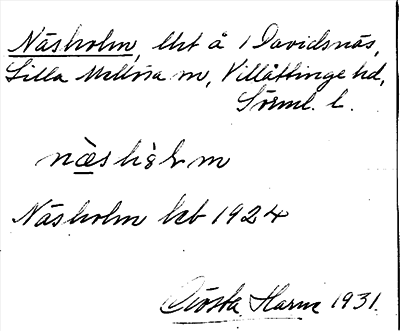 Näsholm, lht å Davidsnäs,
Lilla Mellösa sn, Villåttinge hd,
Sörml. l.
Näsholm kb 1924
Gösta Harm 1931.